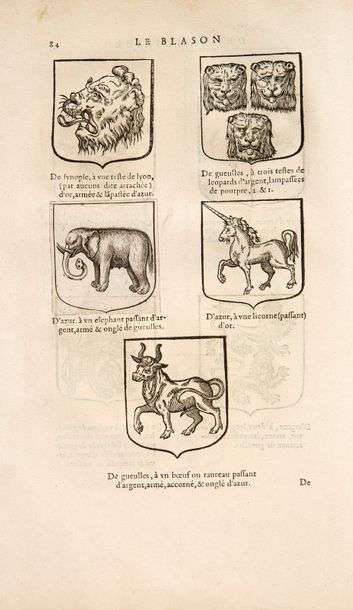 84
LE BLASON
De synople, à vne teste de lyon,
(par aucuns dite arrachée)
d'or, armée & lãpassée d'azur.
De gueulles, à trois testes de
leopards d'argent, lampassées
de pourpre, 2. & 1.
D'azur à vn elephant passant d'ar-
gent, armé & onglé de gueulles.
D'azur, à vne licorne (passant)
d'or.
De gueulles, à vn bœuf ou taureau passant
d'argent, armé, accorné, & onglé d'azur.
De